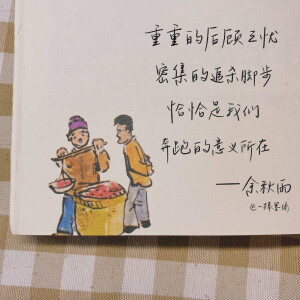 重重的后顾之忧
密集的追杀脚步
恰恰是我们
奔跑的意义所在
——余秋雨
@一禅墨倾